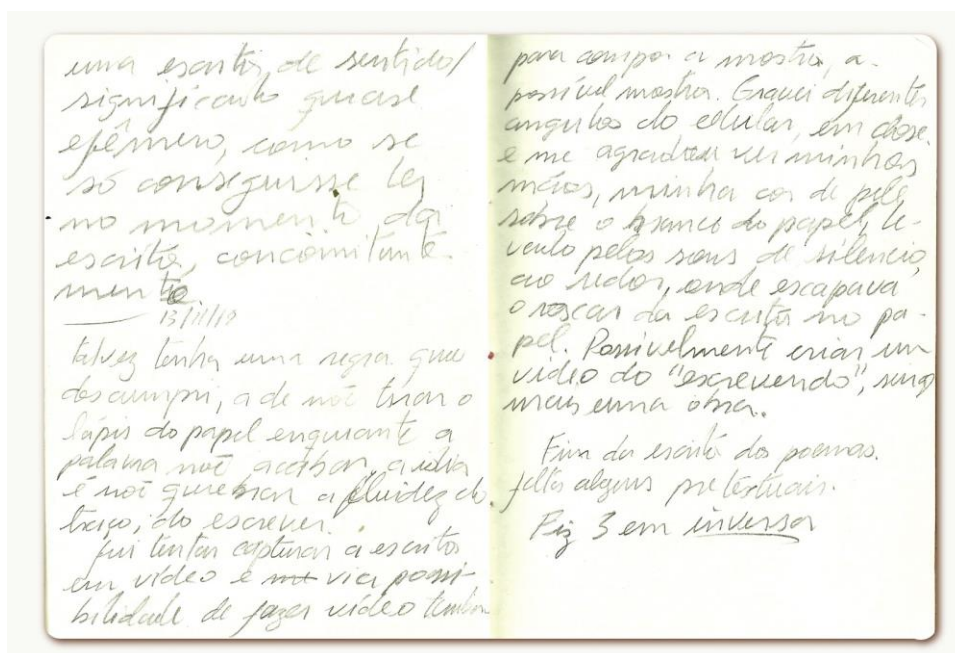 uma escrita, de sentido/
significado quase
efêmero, como se
só conseguisse ler
no momento da
escrita, concomitante
mente
13/11/19
talvez tenha uma regra que
descumpri, a de não tirar o
lápis do papel enquanto a
palavra não acabar, a ideia
é não quebrar a fluidez do
traço, do escrever.
fui tentar capturar a escrita
em vídeo e vi a possi-
bilidade de fazer vídeo também
para compor a mostra, a
possível mostra. Gravei diferentes
angulos do celular, em close
e me agradou ver minhas
mãos, minha cor de pele
sobre o branco do papel, le-
vando pelos sons de silencio
ao redor, onde escapava
o roscar da escrita no pa-
pel. Possivelmente criar um
vídeo do "escrevendo",
mais uma obra.
Fim da escrita dos poemas.
falta alguns pretextuais.
Fiz 3 em inversor